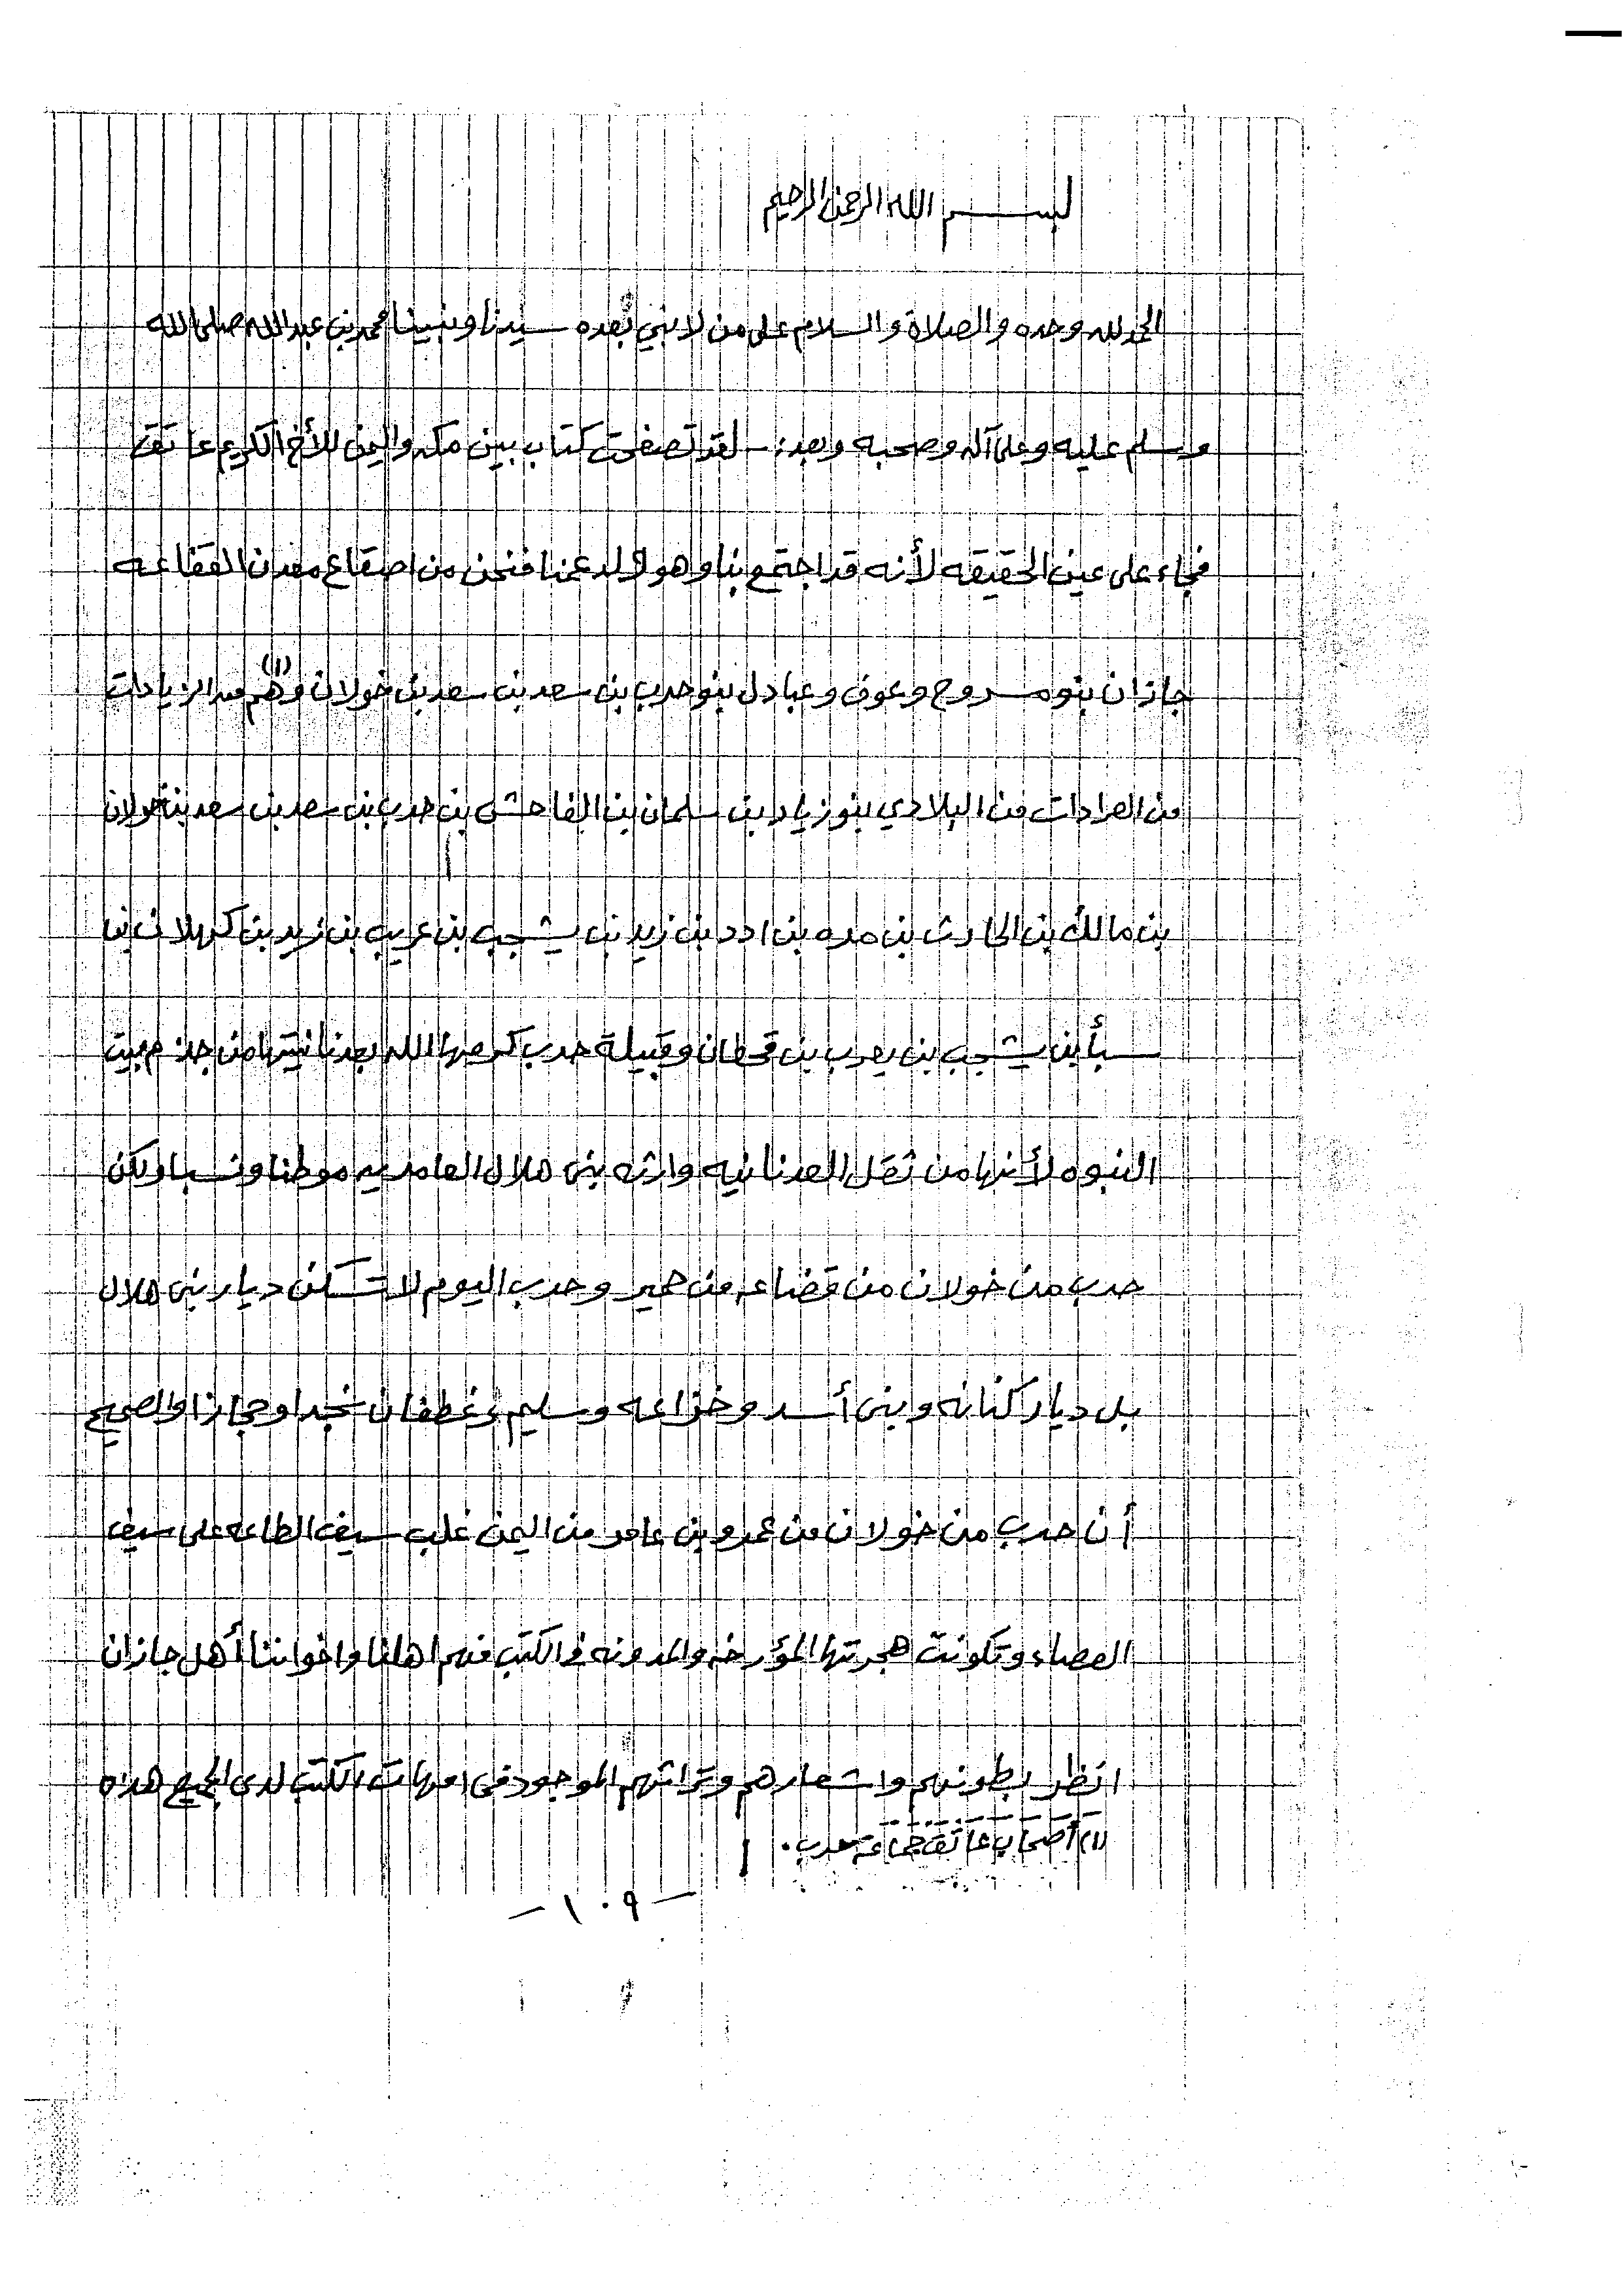 بسم الله الرحمن الرحيم
الحمد لله وحده والصلاة والسلام على من لا نبي بعده سيدنا ونبينا محمد بن عبدالله صلى الله
وسلم عليه وعلى آله وصحبه وبعد :- لقد تصفحت كتاب بين مكه واليمن للأخ الكريم عاتق
فجاء على عين الحقيقه لأنه قد اجتمع بنا وهو ولد عمنا فنحن من اصقاع معدن القفاعه
جازان بنو مروح وعوف وعبادل بنو حرب بن سعد بن سعد بن خولان وهم (١) من الزيادات
من العرادات من البلادي بنو زياد بن سلمان بن الفاحش بن حرب بن سعد بن سعد بن خولان
بن مالك بن الحارث بن مره بن ادد بن زيد بن يشجب بن عريب بن زيد بن كهلان بن
سبأ بن يشجب بن يعرب بن قحطان وقبيلة حرب كرمها الله بعدنانيتها من جذم بيت
النبوه لأنها من ثقل العدنانيه وارثه بني هلال العامريه موطنا ونسبا ولكن
حرب من خولان من قضاعه من حمير وحرب اليوم لا تسكن ديار بني هلال
بل ديار كنانه وبني أسد وخزاعه وسليم وغطفان نجدا وحجازا والصحيح
أن حرب من خولان من عمرو بن عامر من اليمن غلب سيف الطاعه على سيف
العصاء وتكونت هجرتها المؤرخه والمدونه في الكتب فهم اهلنا واخواننا أهل جازان
انظر بطونهم واشعارهم وتراثهم الموجود في امهات الكتب لدى الجميع هذه
(١) أصحاب عاتق جماعة حرب.
- ١٠٩ -